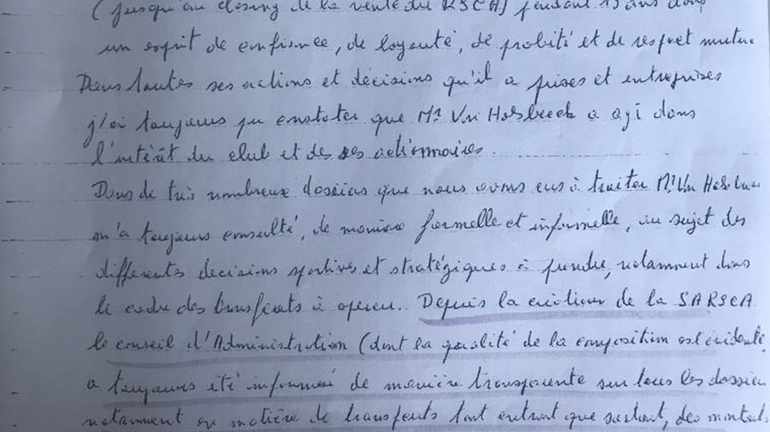 (jusqu'au closing de la vente du RSCA) pendant 15 ans dans
un esprit de confiance, de loyauté, de probité et de respect mutue
Dans toutes ses actions et décisions qu'il a prises et entreprises
j'ai toujours pu constater que Mr Van Holsbeeck a agi dans
l'intérêt du club et des ses actionnaires.
Dans de très nombreux dossiers que nous avons eus à traiter Mr Van Holsbee
m'a toujours consulté, de manière formelle et informelle, au sujet des
différentes décisions sportives et stratégiques à prendre, notamment dans
le cadre des transferts à opérer. Depuis la création de la SARSCA
le conseil d'Administration (dont la qualité de la composition est évidente
a toujours été informé de manière transparente sur tous les dossier
notamment en matière de transferts tant entrant que sortant, des montants